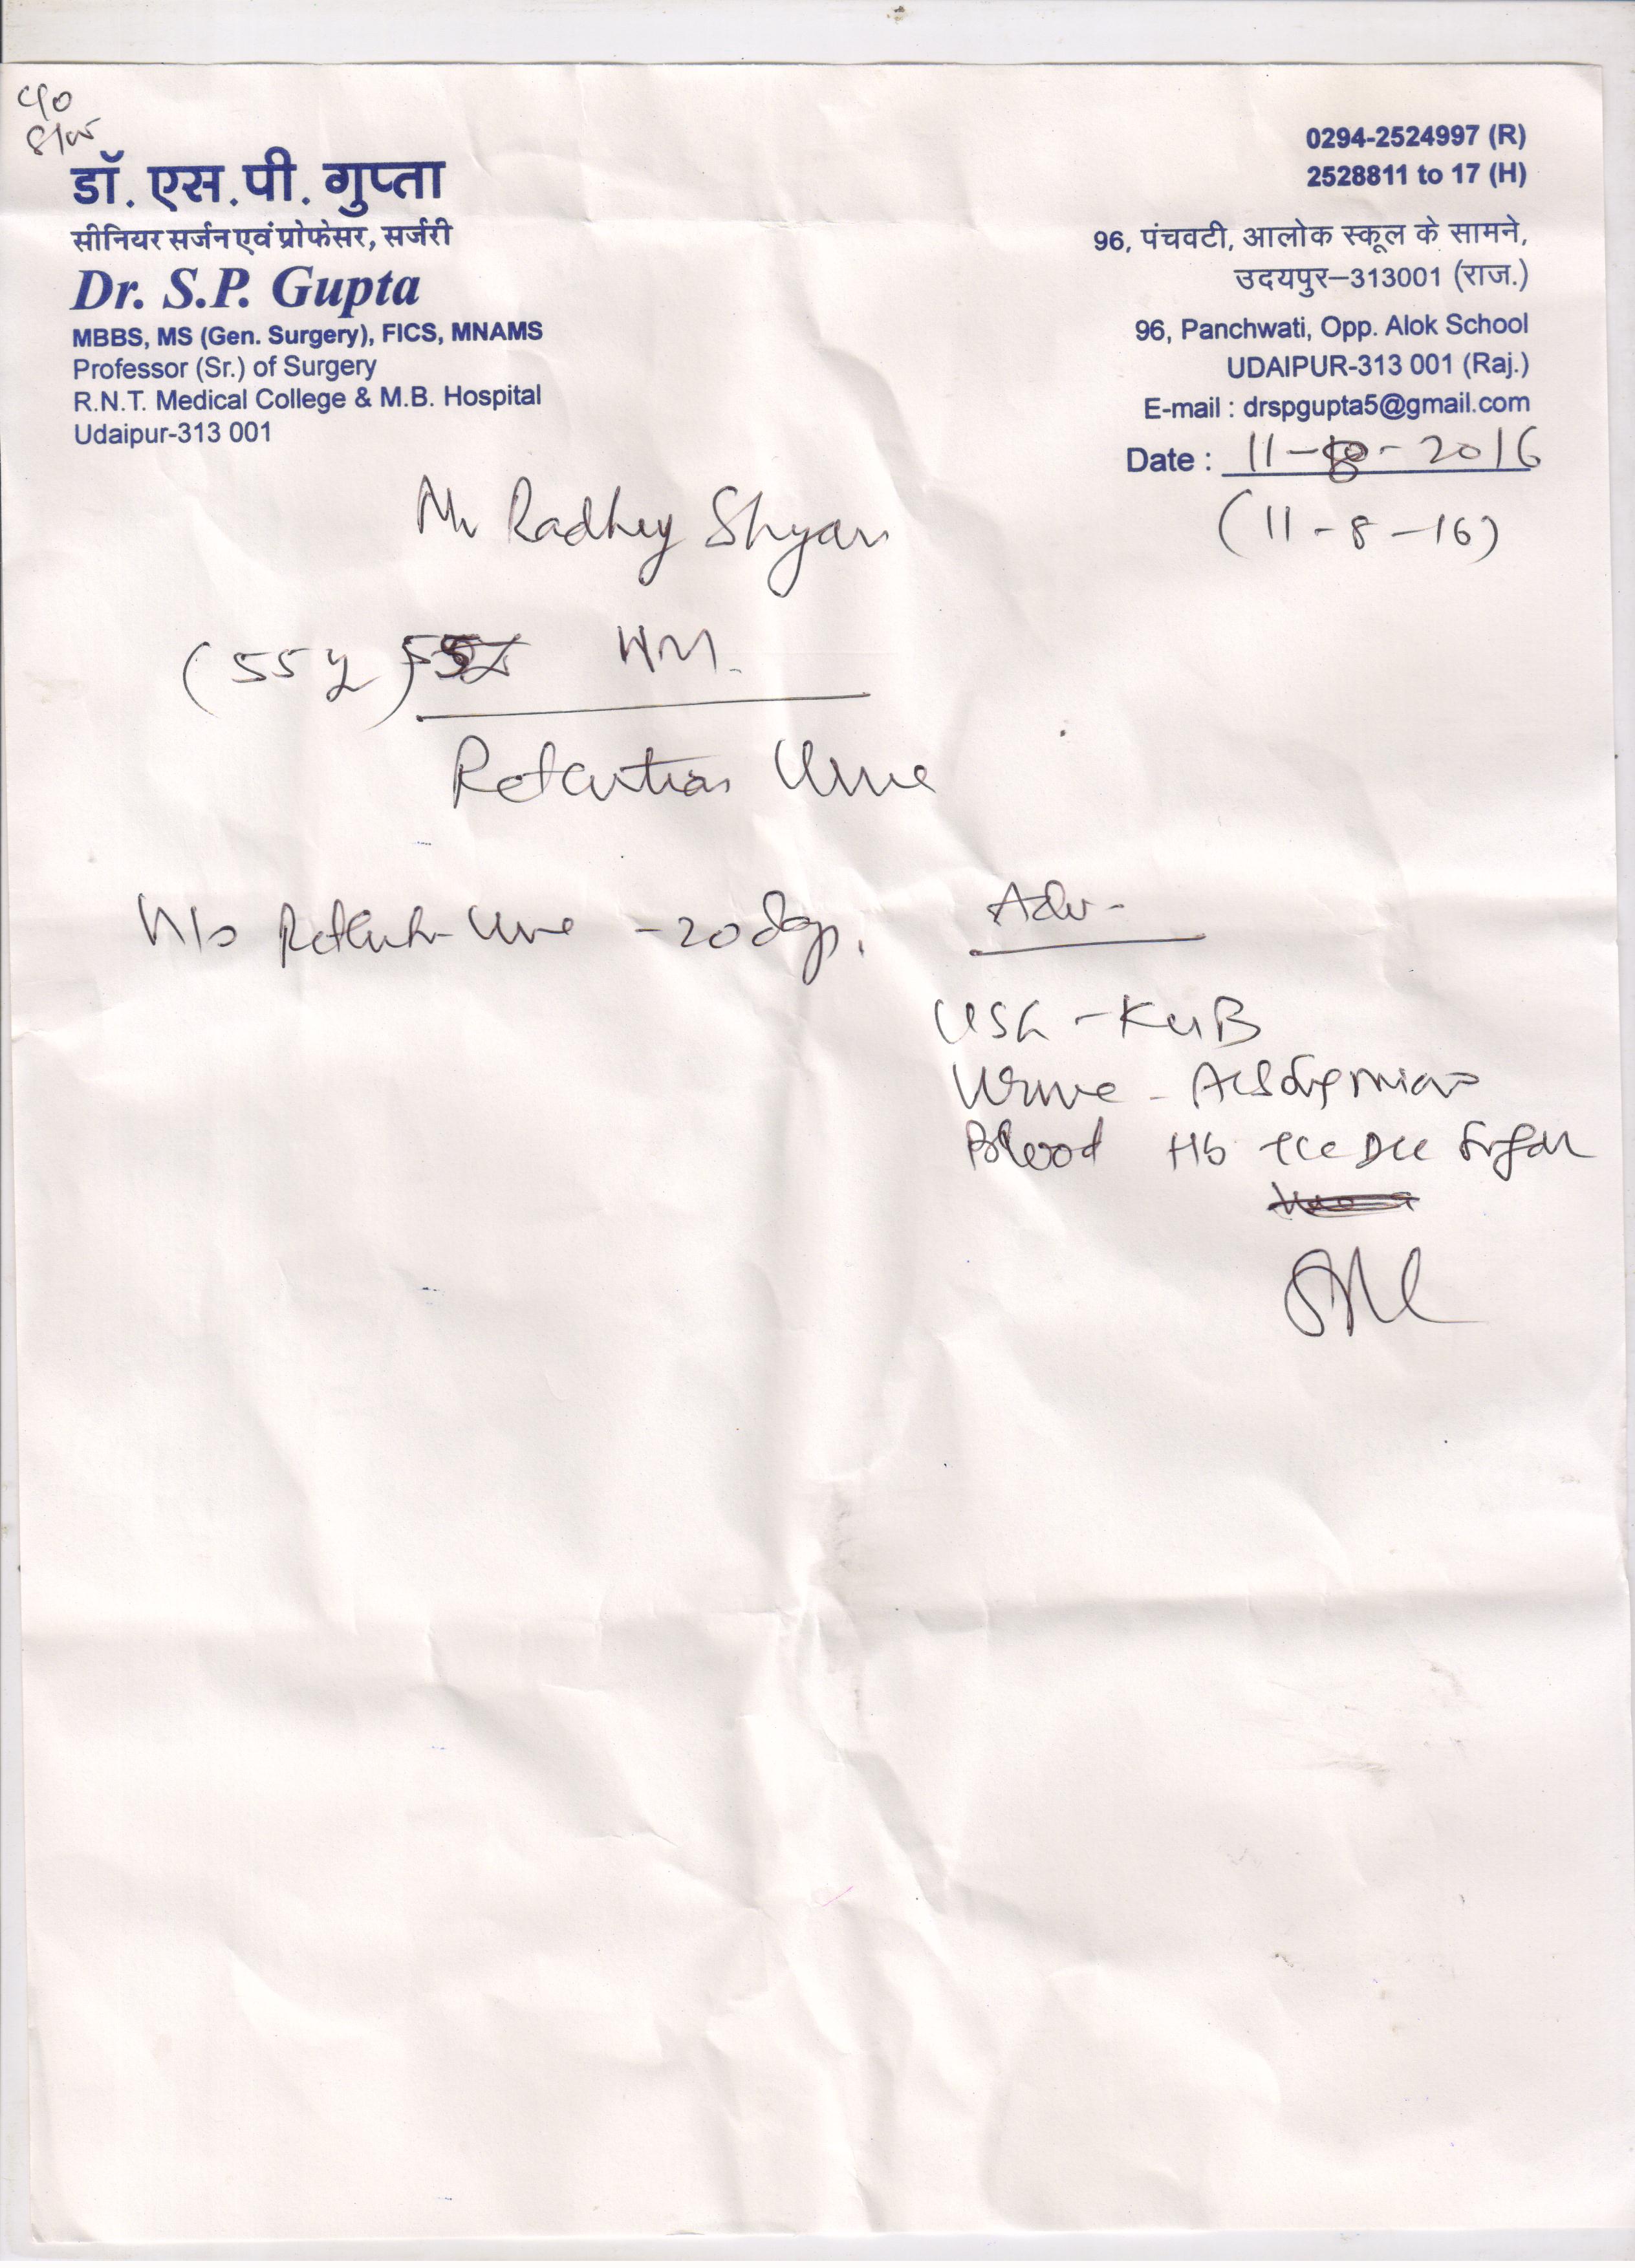 डॉ. एस.पी. गुप्ता
सीनियर सर्जन एवं प्रोफेसर, सर्जरी
Dr. S.P. Gupta
MBBS, MS (Gen. Surgery), FICS, MNAMS
Professor (Sr.) of Surgery
R.N.T. Medical College & M.B. Hospital
Udaipur-313 001
0294-2524997 (R)
2528811 to 17 (H)
96, पंचवटी, आलोक स्कूल के सामने,
उदयपुर–313001 (राज.)
96, Panchwati, Opp. Alok School
UDAIPUR-313 001 (Raj.)
E-mail : drspgupta5@gmail.com
Date : 11-8-2016
(11-8-16)
Mr Radhey Shyam
(55 y) HM.
Retention Urine
H/o Retention Urine - 20 days.
Adv-
USG - KUB
Urine -
Blood Hb TLC DLC Sugar